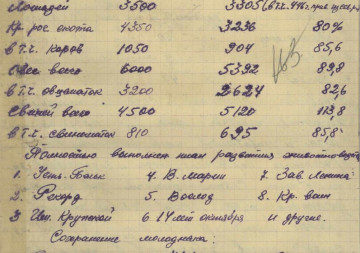 Лошадей 3500 3305 (в т.ч.
Кр. рог. скота 4350 3236 80%
в т.ч. коров 1050 904 85,6
Овец всего 6000 5392 89,8
в т.ч. овцематок 3200 2624 82,6
Свиней всего 4500 5120 113,8
в т.ч. свиноматок 810 695 85,8
Полностью выполнен план развития животновод
1. Усть. 4. В. Марии 7. Зав. Ленина
2. Рекорд 5. Восход 8. Кр. воин
3 Им. Крупской 6 14 лет октября и другие.
Сохранение молодняка: